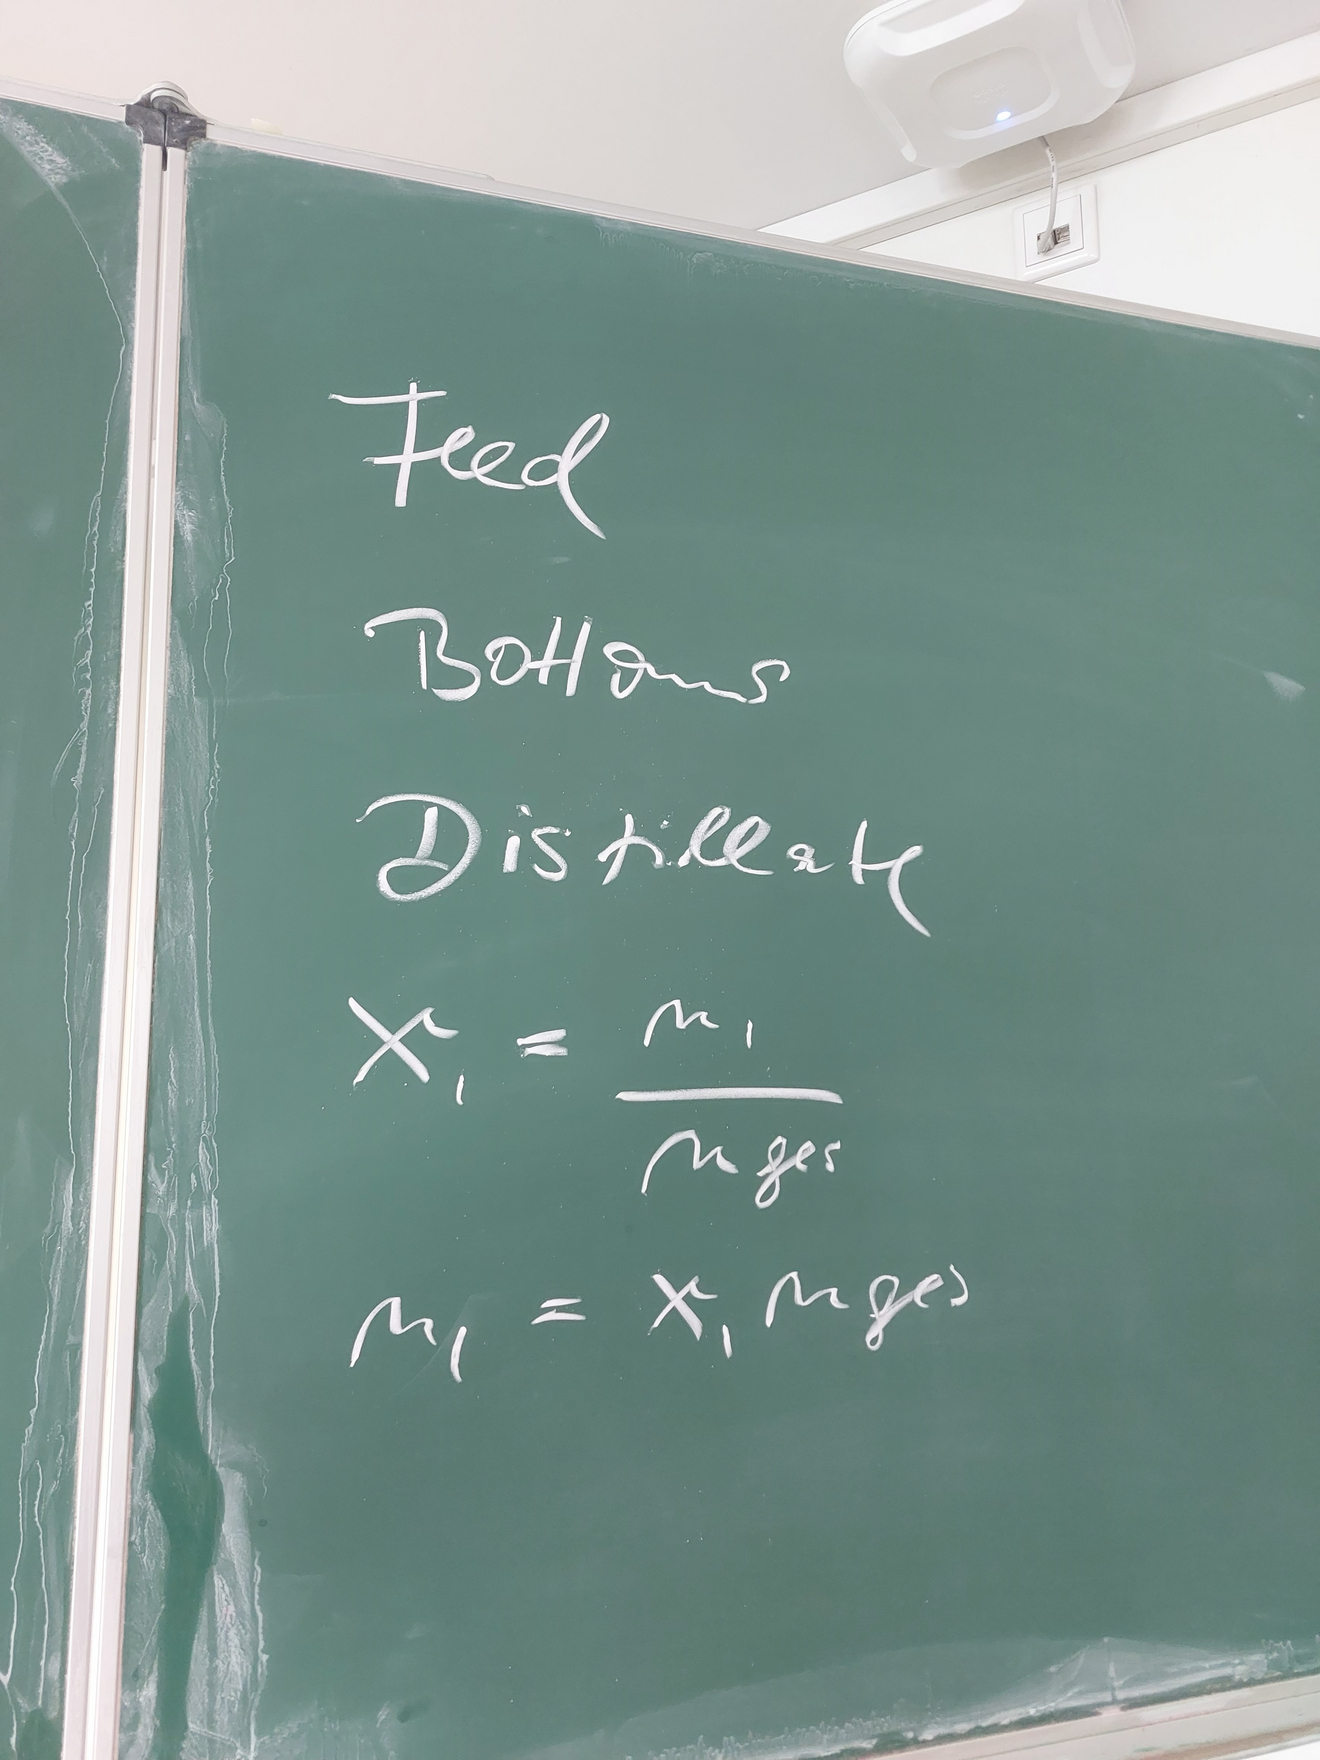 Feed
Bottoms
Distillate
x₁ = n₁ / n ges
n₁ = x₁ n ges